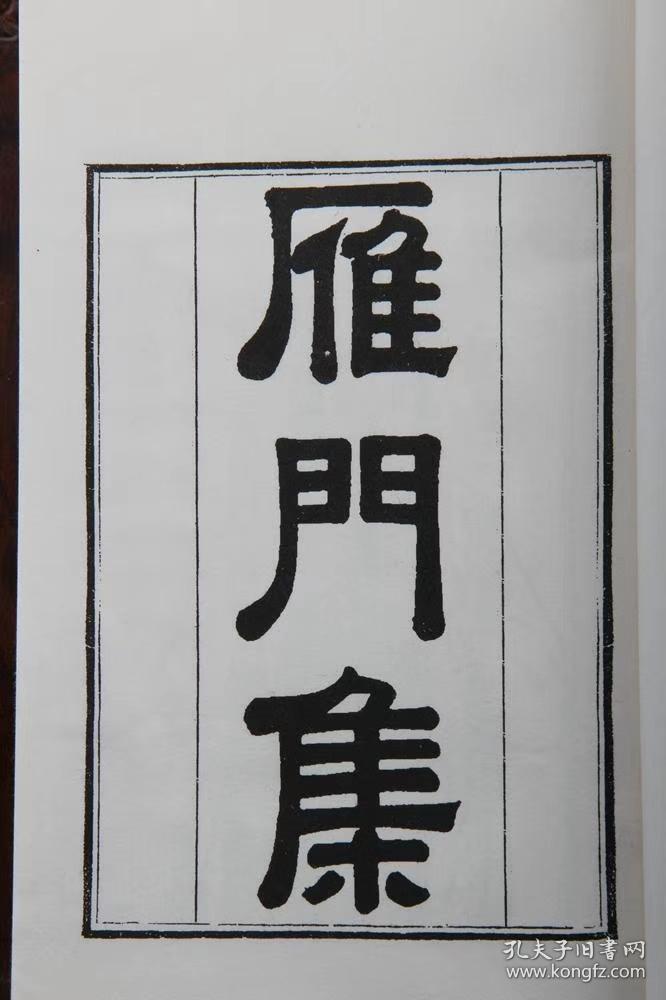 雁門集
孔夫子旧书网
www.kongfz.com